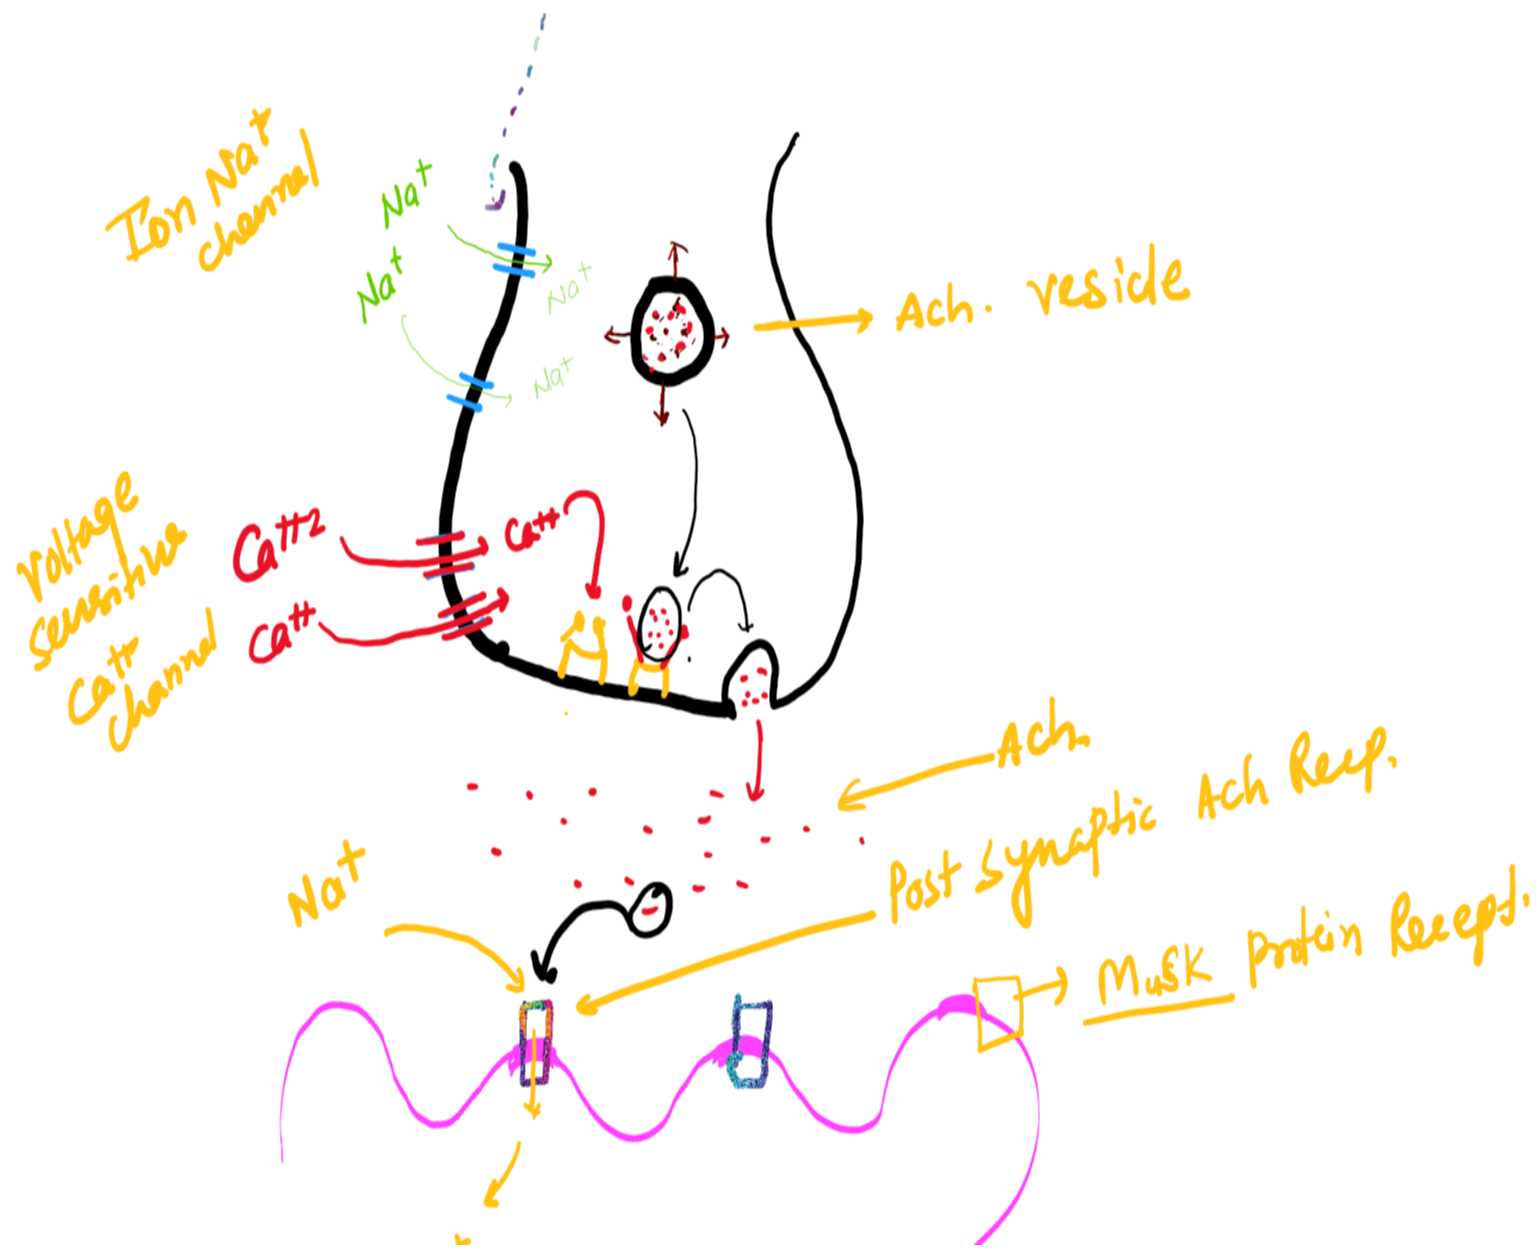 Ion Na+
channel
Na+
Na+
Na+
Na+
Ach. vesicle
Voltage
sensitive
Ca++
channel
Ca++2
Ca++
Ca++
Ach
Post Synaptic Ach Recp.
Na+
MusK protein Recept.